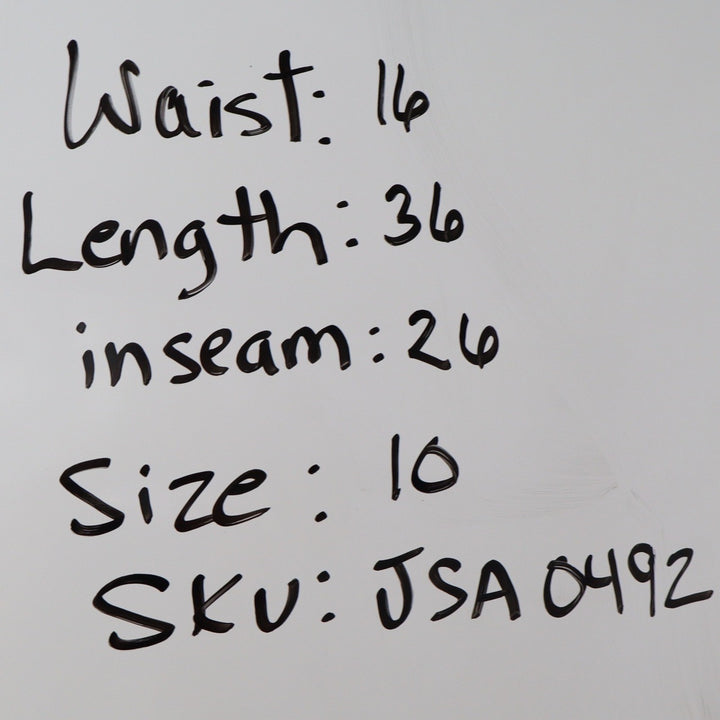 Waist: 16
Length: 36
inseam: 26
Size: 10
SKU: JSA 0492